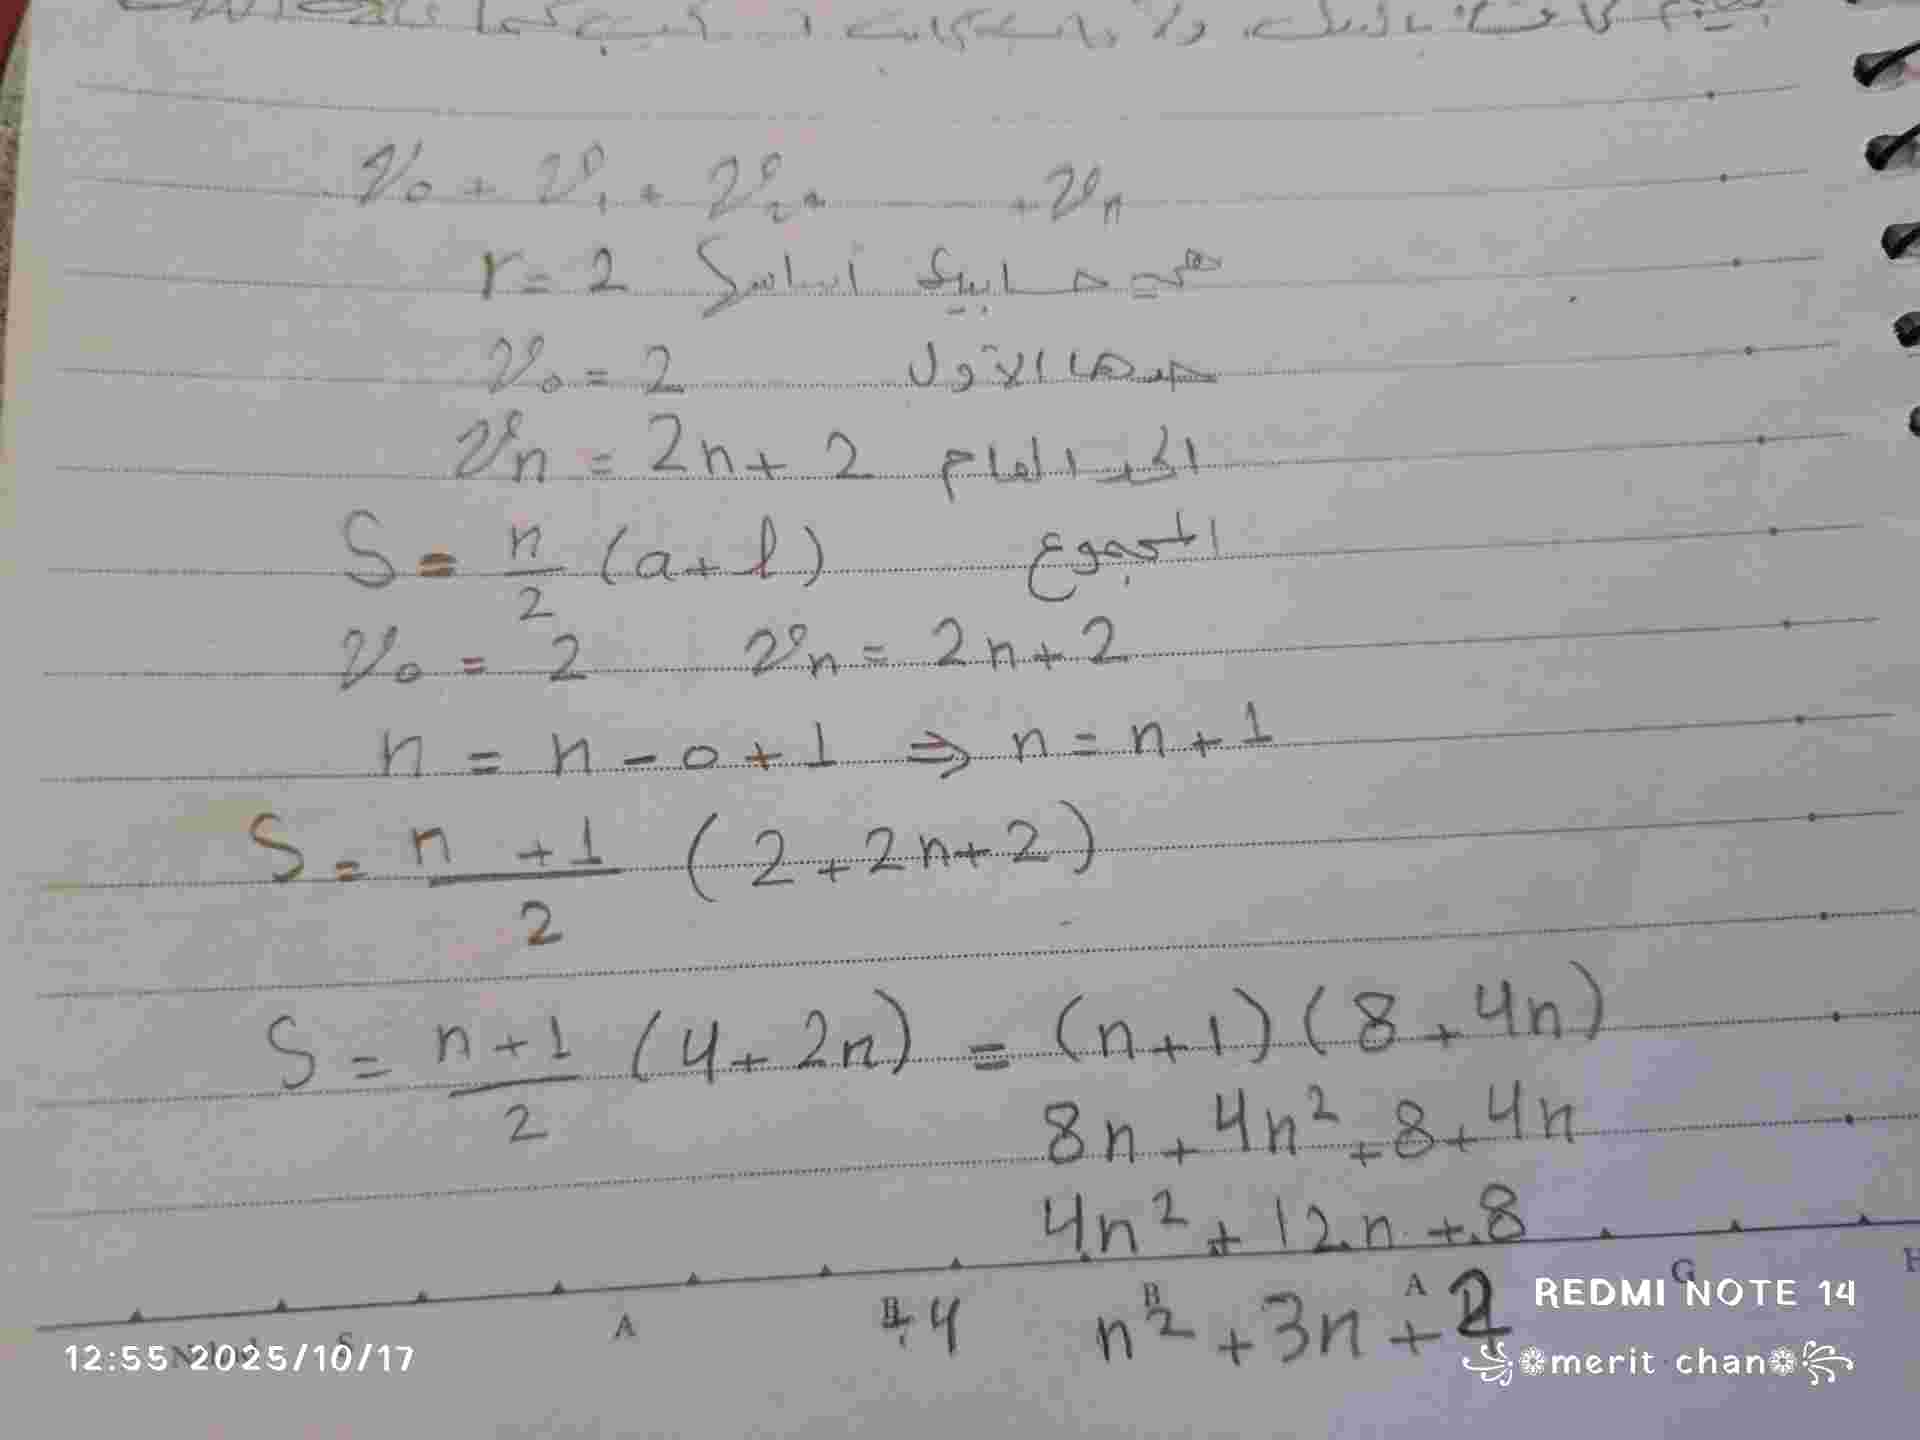 v₀ + v₁ + v₂ + ........ + vₙ
هي حسابية أساسها r = 2
حدها الأول v₀ = 2
الحد العام vₙ = 2n + 2
المجموع S = n/2 (a + l)
v₀ = 2 vₙ = 2n + 2
n = n - 0 + 1 ⇒ n = n + 1
S = n + 1/2 (2 + 2n + 2)
S = n + 1/2 (4 + 2n) = (n + 1)(8 + 4n)
8n + 4n² + 8 + 4n
4n² + 12n + 8
÷4 n² + 3n + 2
A B A G H
REDMI NOTE 14
12:55 2025/10/17
merit chan